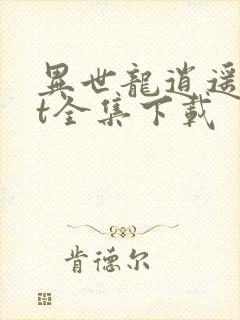 異世龍逍遥
t全集下載
肯德尔